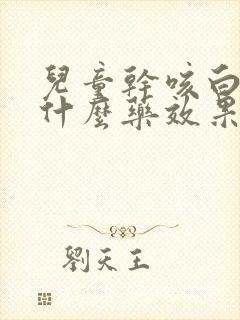 兒童幹咳白
什麼藥效果
劉天王